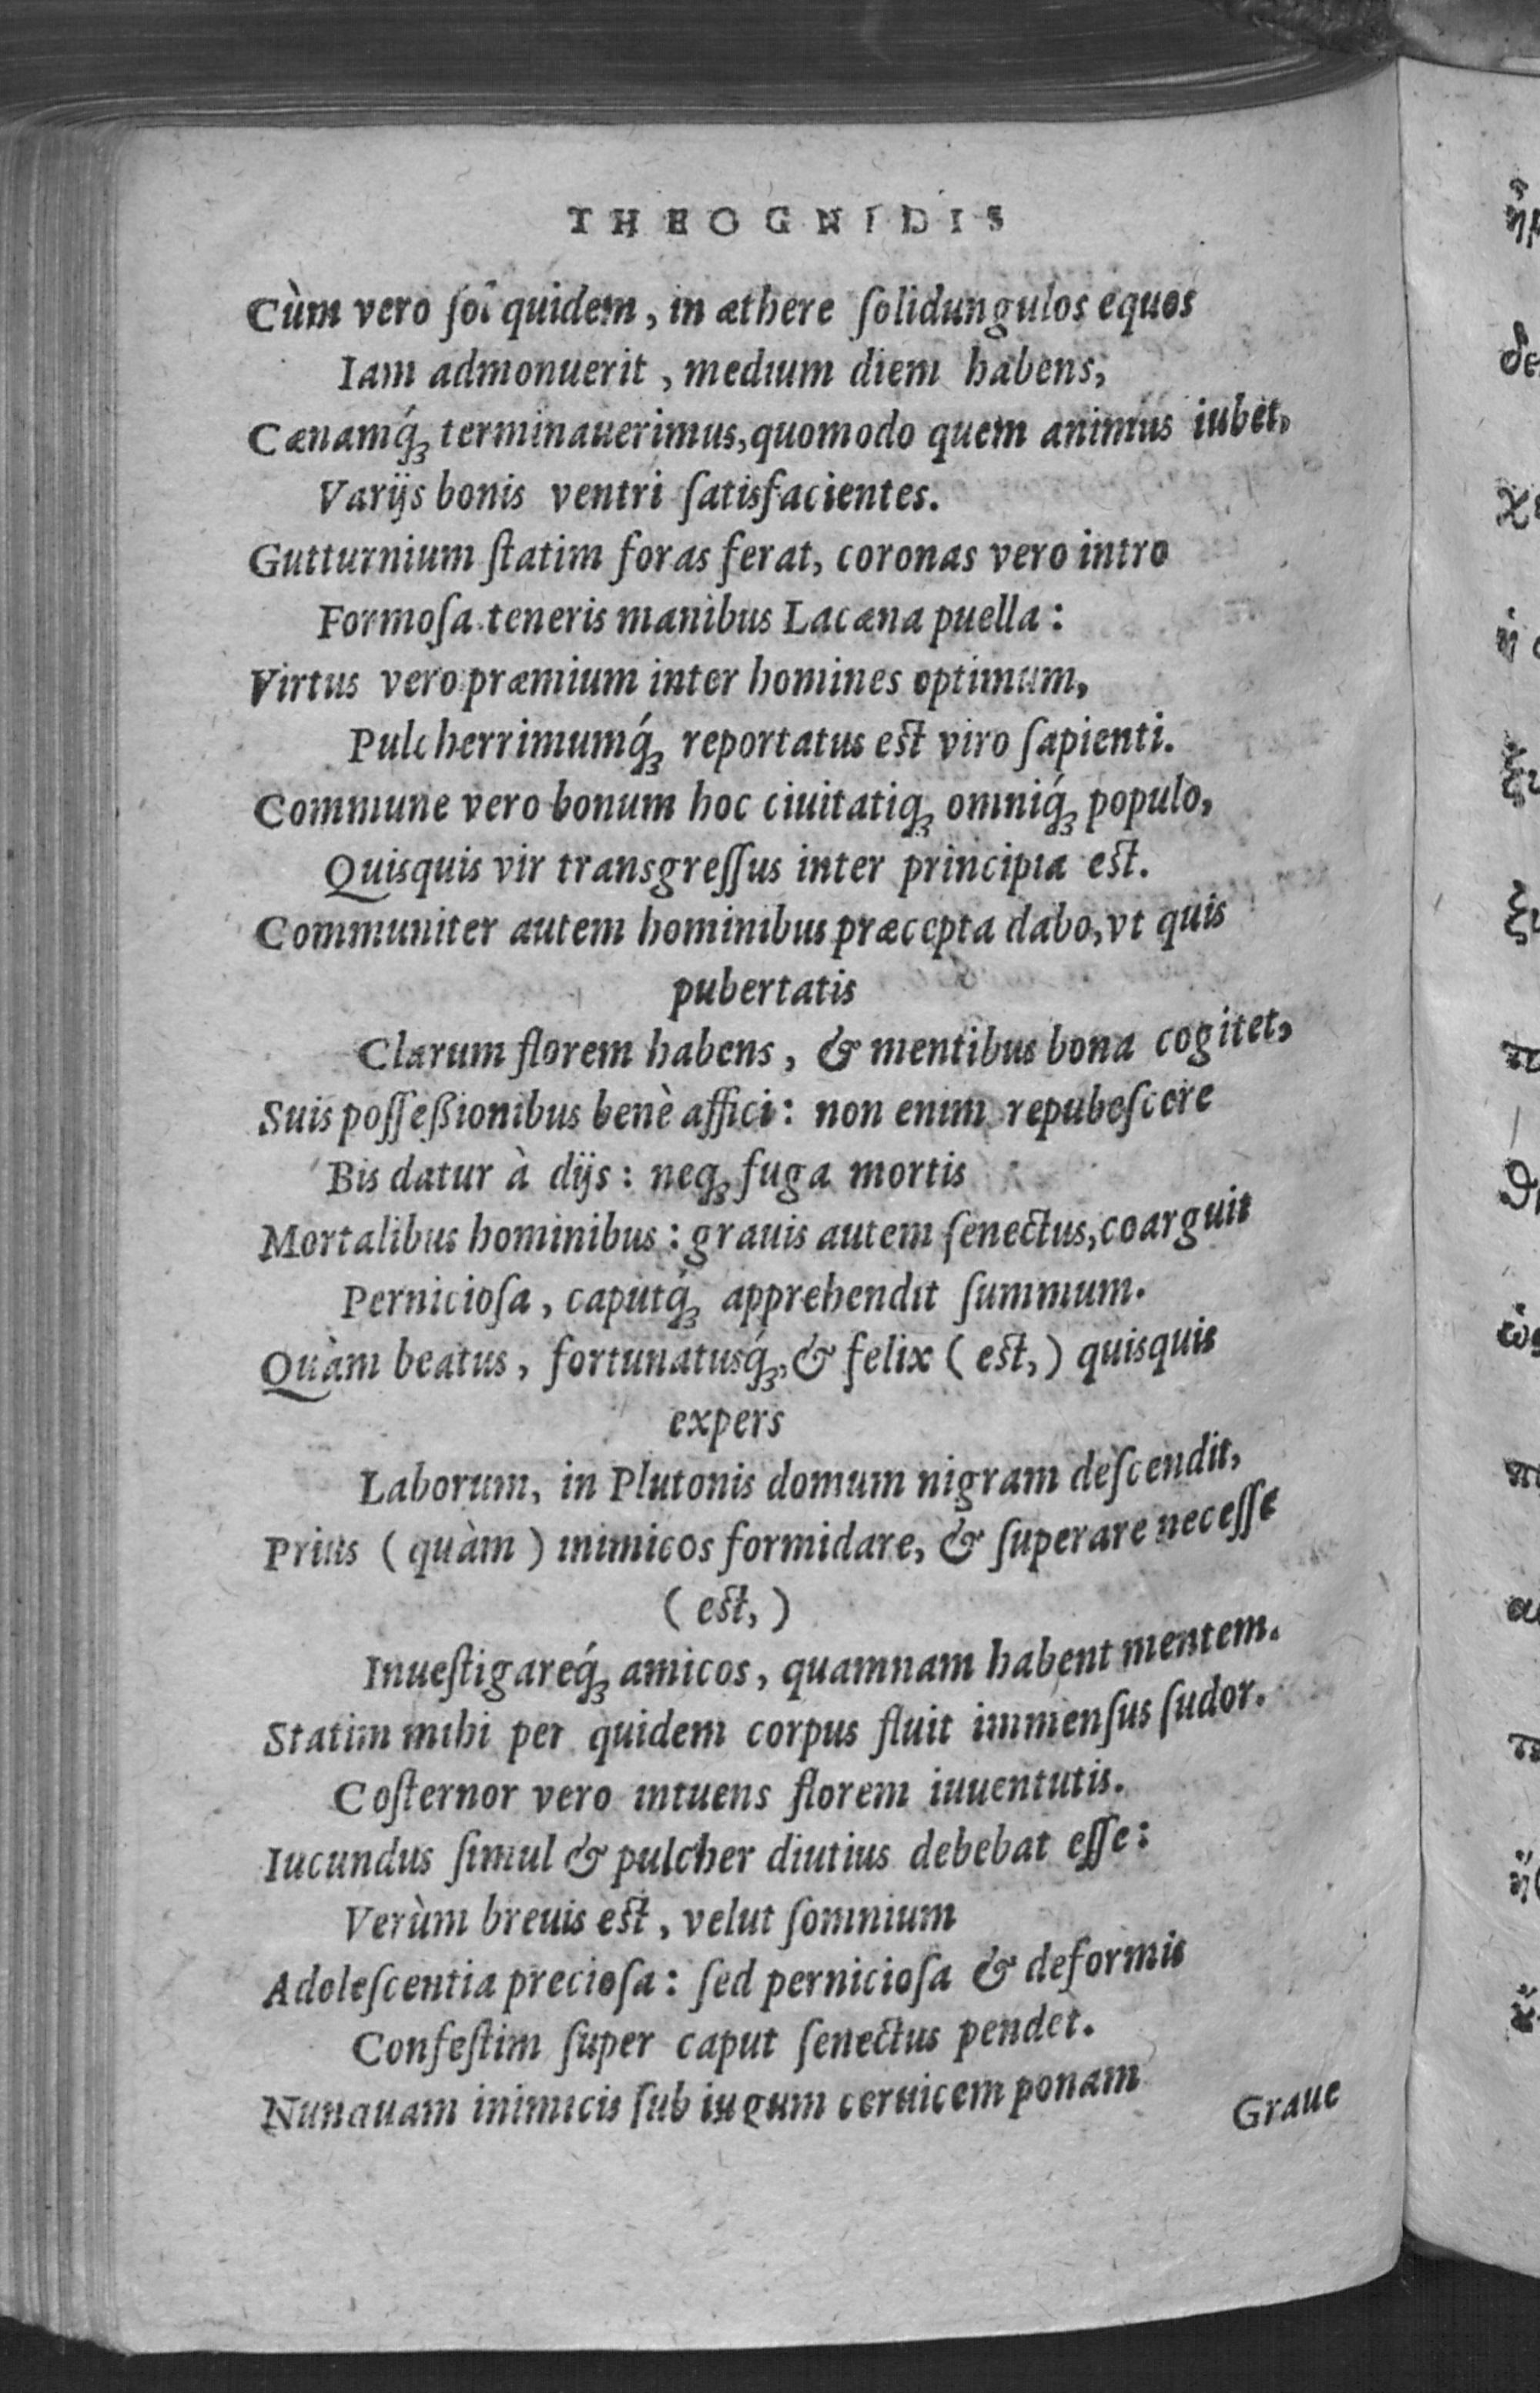 THEOGNIDIS
Cùm vero ſol quidem, in æthere ſolidungulos equos
Iam admonuerit, medium diem habens,
Cænamq́ꝫ terminauerimus, quomodo quem animus iubet,
Varijs bonis ventri ſatisfacientes.
Gutturnium ſtatim foras ferat, coronas vero intro
Formoſa teneris manibus Lacæna puella:
Virtus vero præmium inter homines optimum,
Pulcherrimumq́ꝫ reportatus eſt viro ſapienti.
Commune vero bonum hoc ciuitatiqꝫ omniq́ꝫ populo,
Quisquis vir transgreſſus inter principia eſt.
Communiter autem hominibus præcepta dabo, vt quis
pubertatis
Clarum florem habens, & mentibus bona cogitet,
Suis poſſeßionibus benè affici: non enim repubeſcere
Bis datur à dijs: neqꝫ fuga mortis
Mortalibus hominibus: grauis autem ſenectus, coarguit
Pernicioſa, caputq́ꝫ apprehendit ſummum.
Quàm beatus, fortunatusq́ꝫ, & felix (eſt,) quisquis
expers
Laborum, in Plutonis domum nigram deſcendit,
Prius (quàm) inimicos formidare, & ſuperare neceſſe
(eſt,)
Inueſtigareq́ꝫ amicos, quamnam habent mentem.
Statim mihi per quidem corpus fluit immenſus ſudor.
Coſternor vero intuens florem iuuentutis.
Iucundus ſimul & pulcher diutius debebat eſſe:
Verùm breuis eſt, velut ſomnium
Adoleſcentia precioſa: ſed pernicioſa & deformis
Confeſtim ſuper caput ſenectus pendet.
Nunquam inimicis ſub iugum ceruicem ponam
Graue